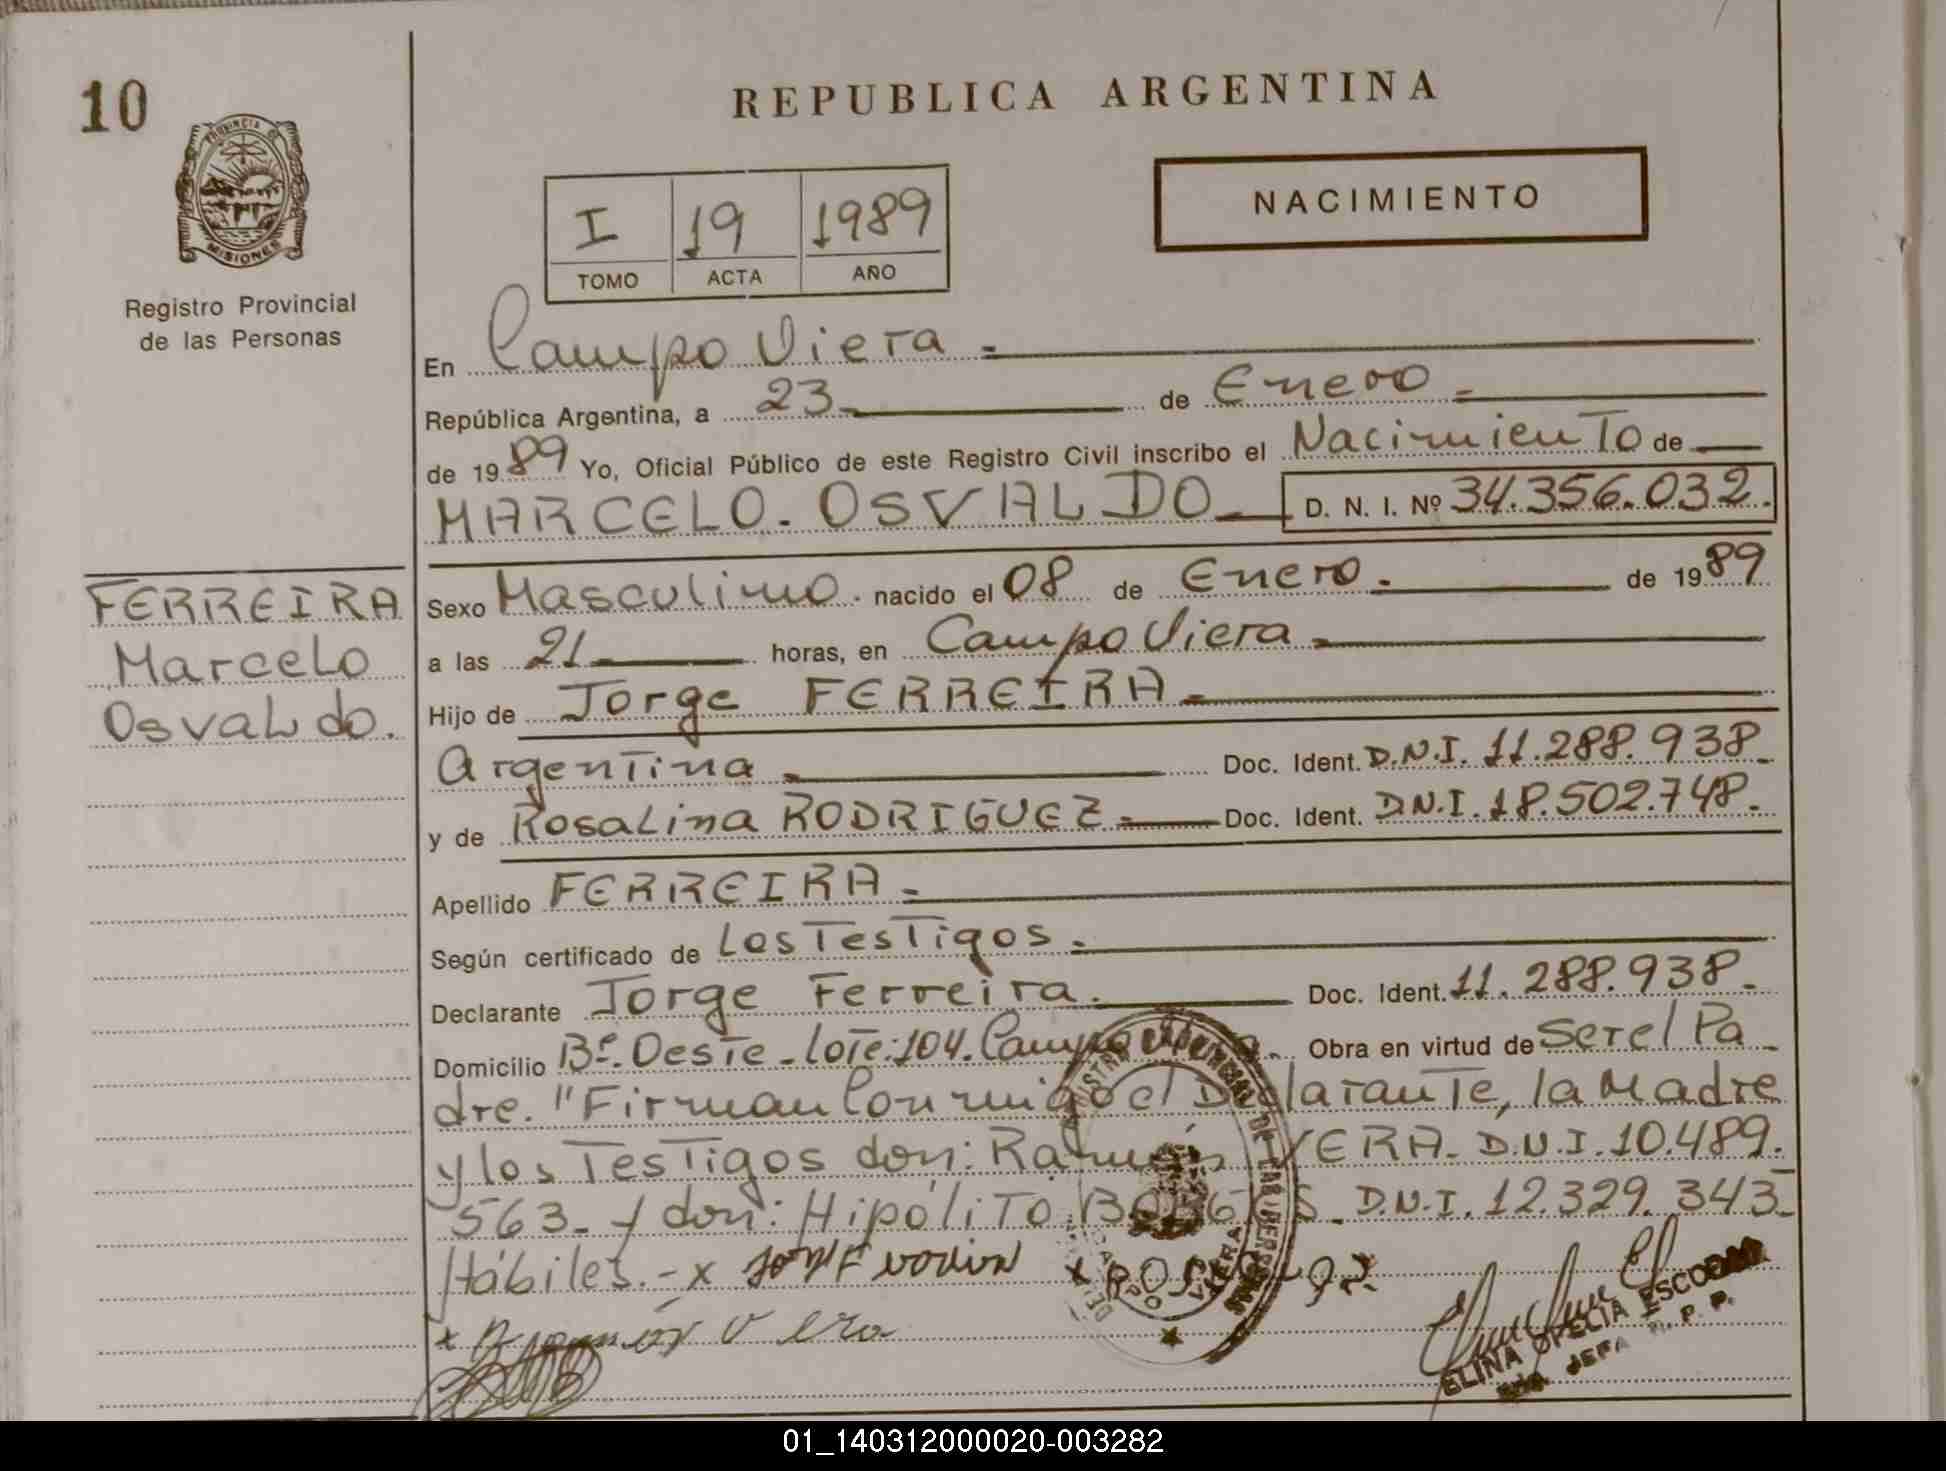 10
PROVINCIA DE
MISIONES
Registro Provincial
de las Personas
REPUBLICA ARGENTINA
I 19 1989
TOMO ACTA AÑO
NACIMIENTO
En Campo Viera.-
República Argentina, a 23 de Enero.-
de 1989 Yo, Oficial Público de este Registro Civil inscribo el Nacimiento de
MARCELO. OSVALDO D. N. I. Nº 34.356.032.
FERREIRA
Marcelo
Osvaldo.
Sexo Masculino. nacido el 08 de Enero. de 1989
a las 21 horas, en Campo Viera
Hijo de Jorge FERREIRA
Argentina Doc. Ident. D.N.I. 11.288.938
y de Rosalina RODRIGUEZ. Doc. Ident. D.N.I. 18.502.748.
Apellido FERREIRA
Según certificado de Los Testigos.
Declarante Jorge Ferreira. Doc. Ident. 11.288.938.
Domicilio Bº. Oeste - Lote: 104. Campo Obra en virtud de Ser el Pa
dre. "Firman Conmigo el Declarante, la Madre
y los Testigos don: Ramón VERA. D.N.I. 10.489.
563. y don: Hipólito D.N.I. 12.329.343
Hábiles.- x
x
ELINA OFELIA ESCOBAR
JEFA R. P. P.
01_140312000020-003282